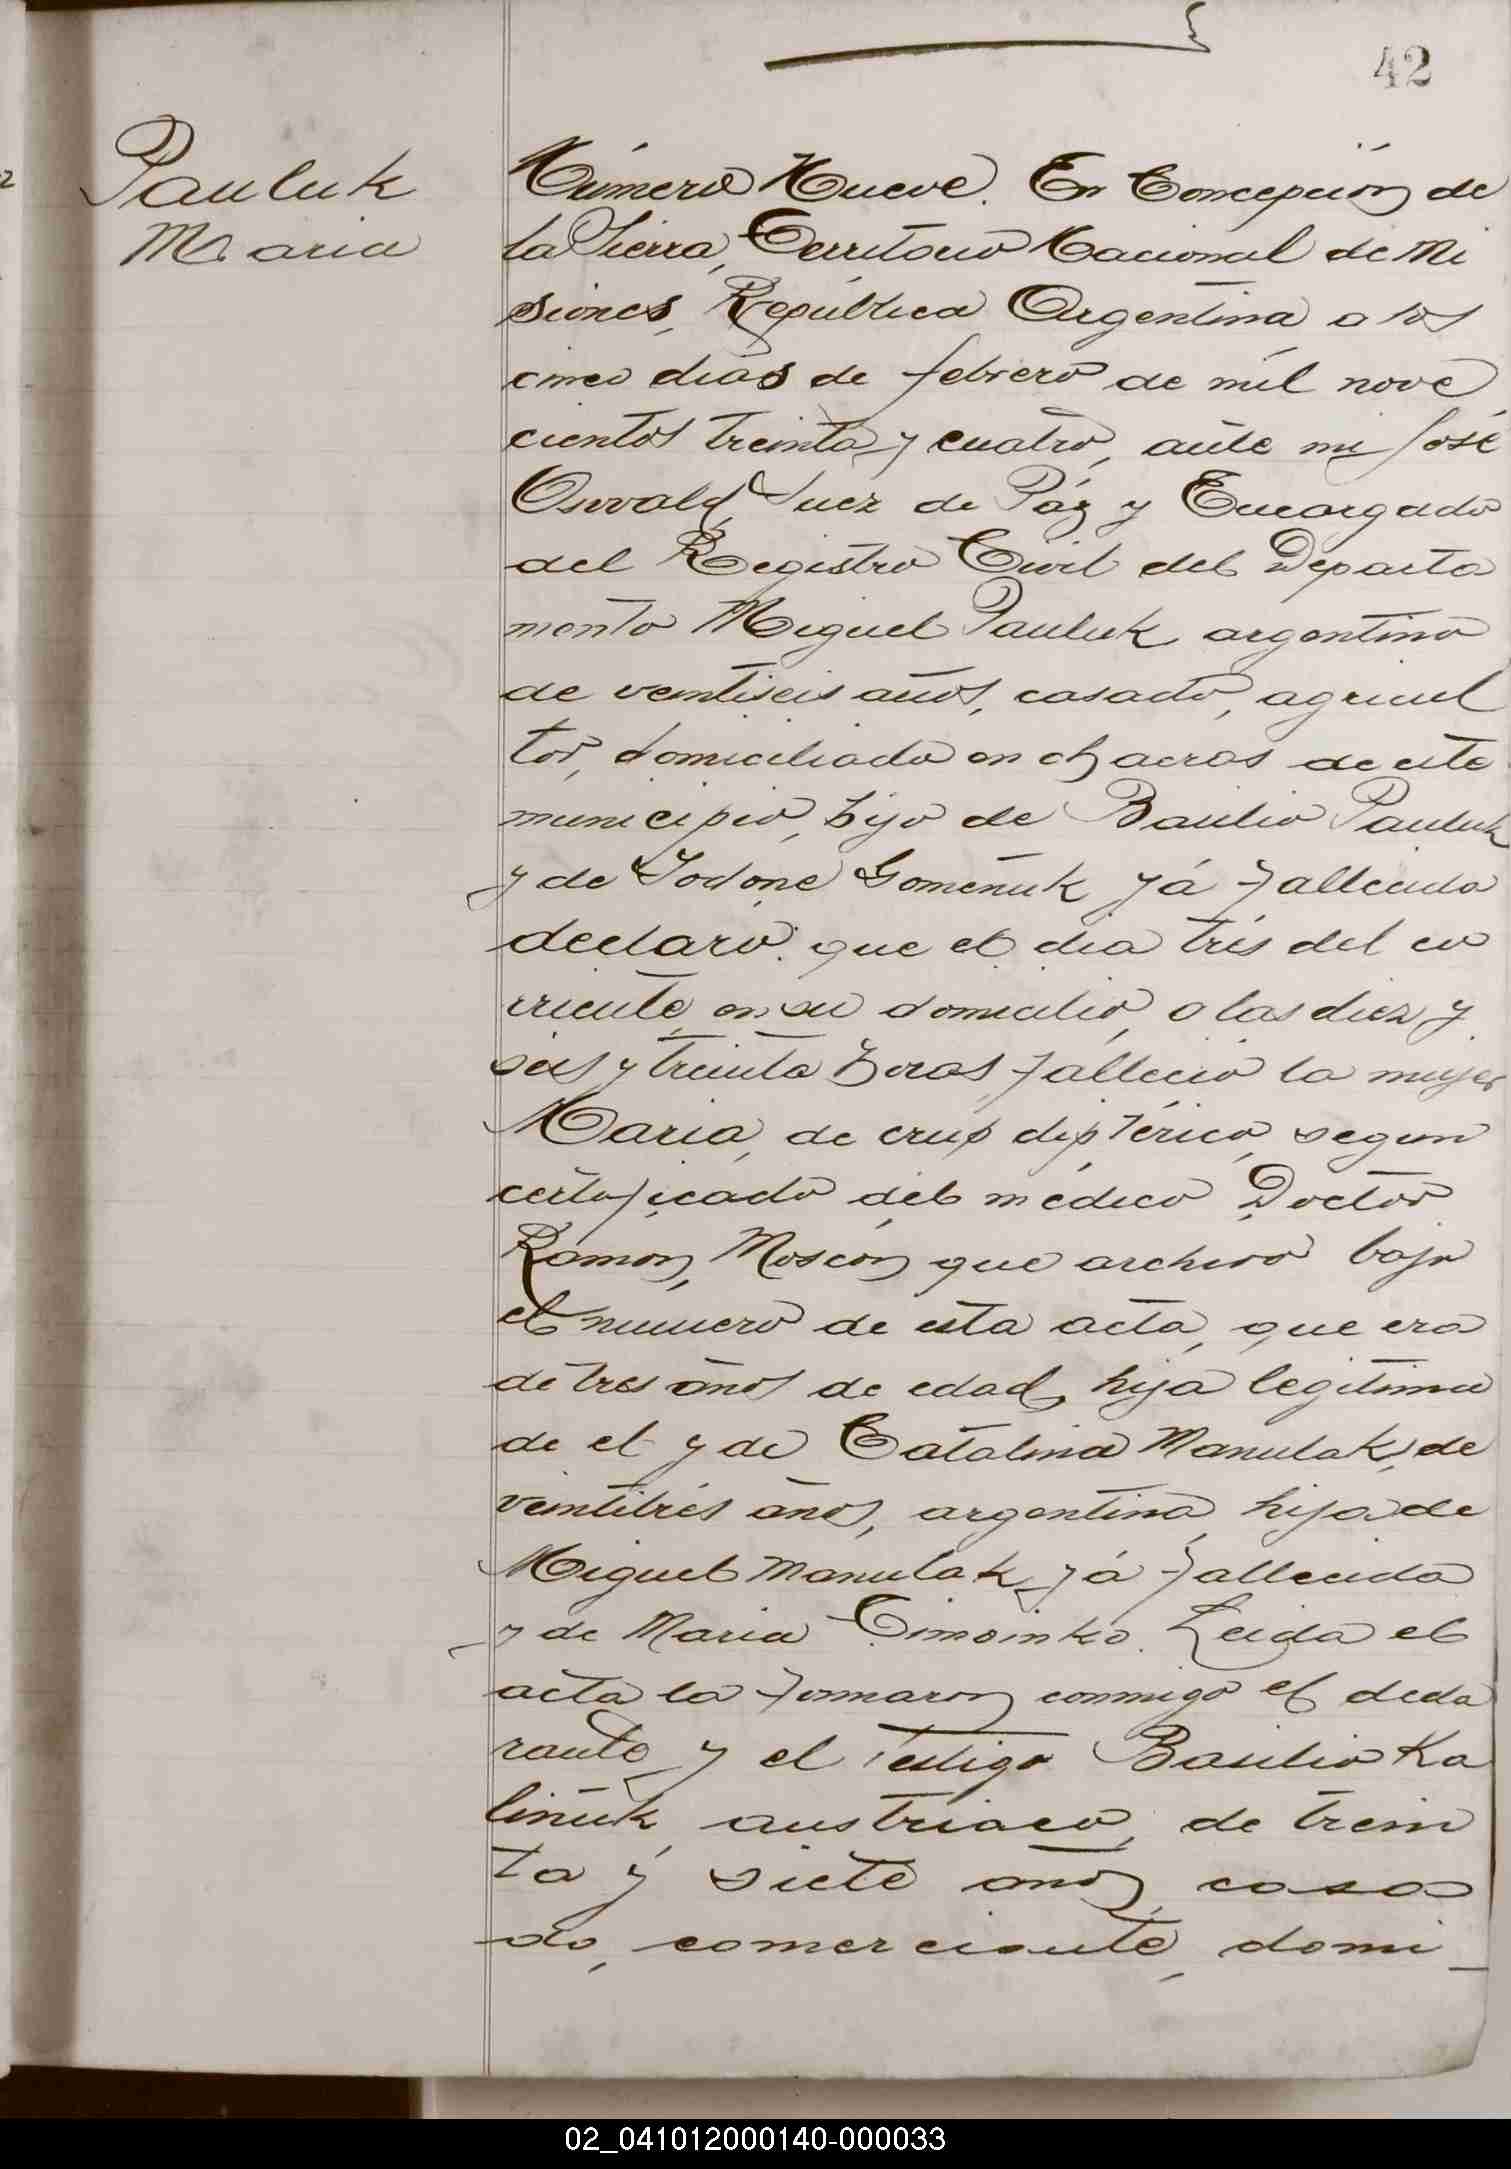 42
Pauluk
Maria
Número Nueve. En Concepción de
la Sierra, Territorio Nacional de Mi
siones, República Argentina a los
cinco dias de febrero de mil nove
cientos treinta y cuatro, ante mi José
Osvald, Juez de Páz y Encargado
del Registro Civil del Departa
mento Miguel Pauluk argentino
de veintiseis años, casado, agricul
tor, domiciliado en chacras de este
municipio, hijo de Basilio Pauluk
y de Jodone Gomeñuk yá fallecida
declaro: que el dia trés del co
rriente, en su domicilio, a las diez y
seis y treinta horas, falleció la mujer
Maria, de crup diptérico, segun
certificado del médico Doctor
Ramon Moscon que archivo bajo
el numero de esta acta, que era
de tres años de edad, hija legitima
de el y de Catalina Manulak, de
veintitrés anos, argentina, hija de
Miguel Manulak, yá fallecida
y de Maria Timoinko. Leida el
acta la firmaron conmigo el decla
rante y el testigo Basilio Ka
liñuk, austriaco, de trein
ta y siete anos, casa
do, comerciante, domi_
02_041012000140-000033